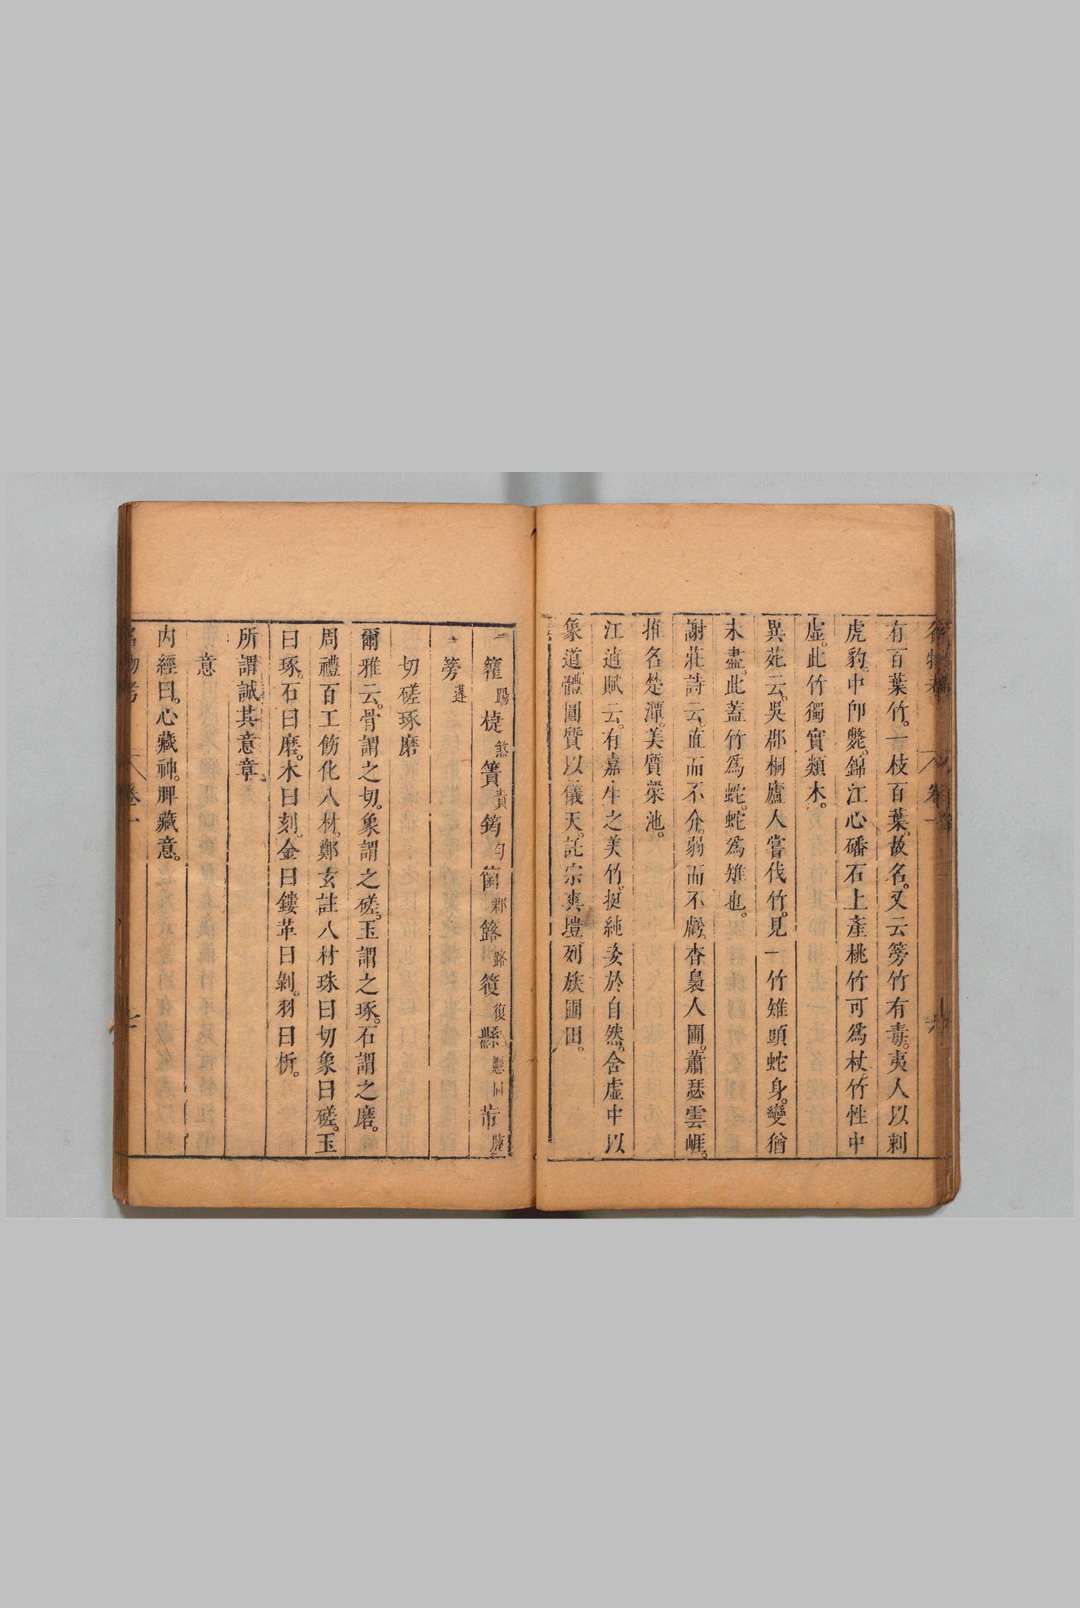 有百葉竹。一枝百葉。故名。又云篣竹有毒。夷人以刺
虎豹。中卽斃。錦江心磻石上產桃竹可爲杖。竹性中
虛。此竹獨實類木。
異苑云。吳郡桐廬人嘗伐竹。見一竹雉頭蛇身。變猶
未盡。此蓋竹爲蛇。蛇爲雉也。
謝莊詩云。直而不介。弱而不虧。杳裊人圃。蕭瑟雲崕。
推名楚潭。美質梁池。
江逌賦云。有嘉生之美竹。挺純姿於自然。含虛中以
象道體圓質以儀天。託宗爽塏列族圃田。
篣
切磋琢磨
爾雅云。骨謂之切。象謂之磋。玉謂之琢。石謂之磨。
周禮百工飭化八材。鄭玄註八材珠曰切象曰磋。玉
曰琢。石曰磨。木曰刻。金曰鏤革曰剝。羽曰析。
所謂誠其意章。
意
內經曰。心藏神。脾藏意。
名物考 卷一 七